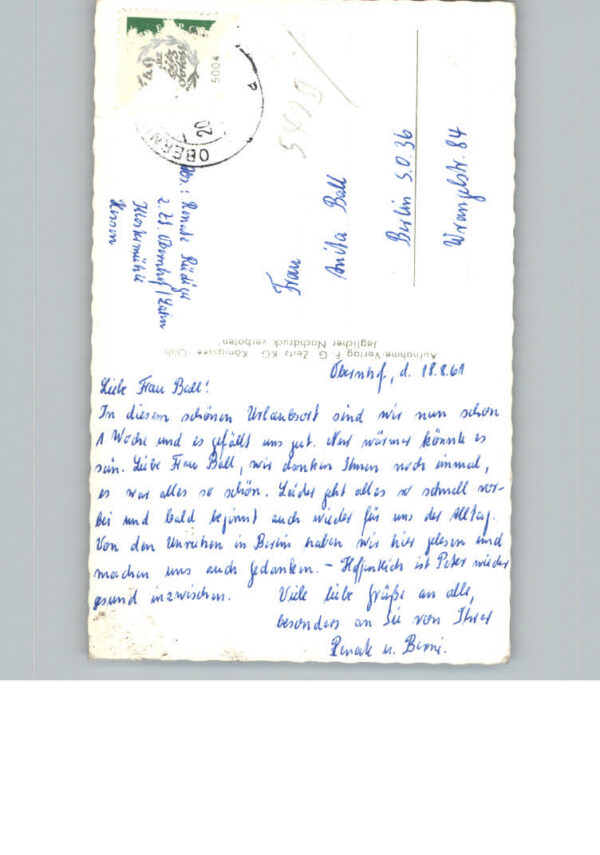 5004
OBERN
20
5409
Abs.: Renate Rüdiger
z. Zt. Obernhof/Lahn
Klostermühle
Hessen
Frau
Anita Ball
Berlin S.O. 36
Wrangelstr. 84
Aufnahme-Verlag F. G. Zeitz KG Königssee/Obb
Jeglicher Nachdruck verboten!
Obernhof, d. 18.8.61
Liebe Frau Ball!
In diesem schönen Urlaubsort sind wir nun schon
1 Woche und es gefällt uns gut. Nur wärmer könnte es
sein. Liebe Frau Ball, wir danken Ihnen noch einmal,
es war alles so schön. Leider geht alles so schnell vor-
bei und bald beginnt auch wieder für uns der Alltag.
Von den Unruhen in Berlin haben wir hier gelesen und
machen uns auch Gedanken. – Hoffentlich ist Peter wieder
gesund inzwischen. Viele liebe Grüße an alle,
besonders an Sie von Ihrer
Renate u. Berni.